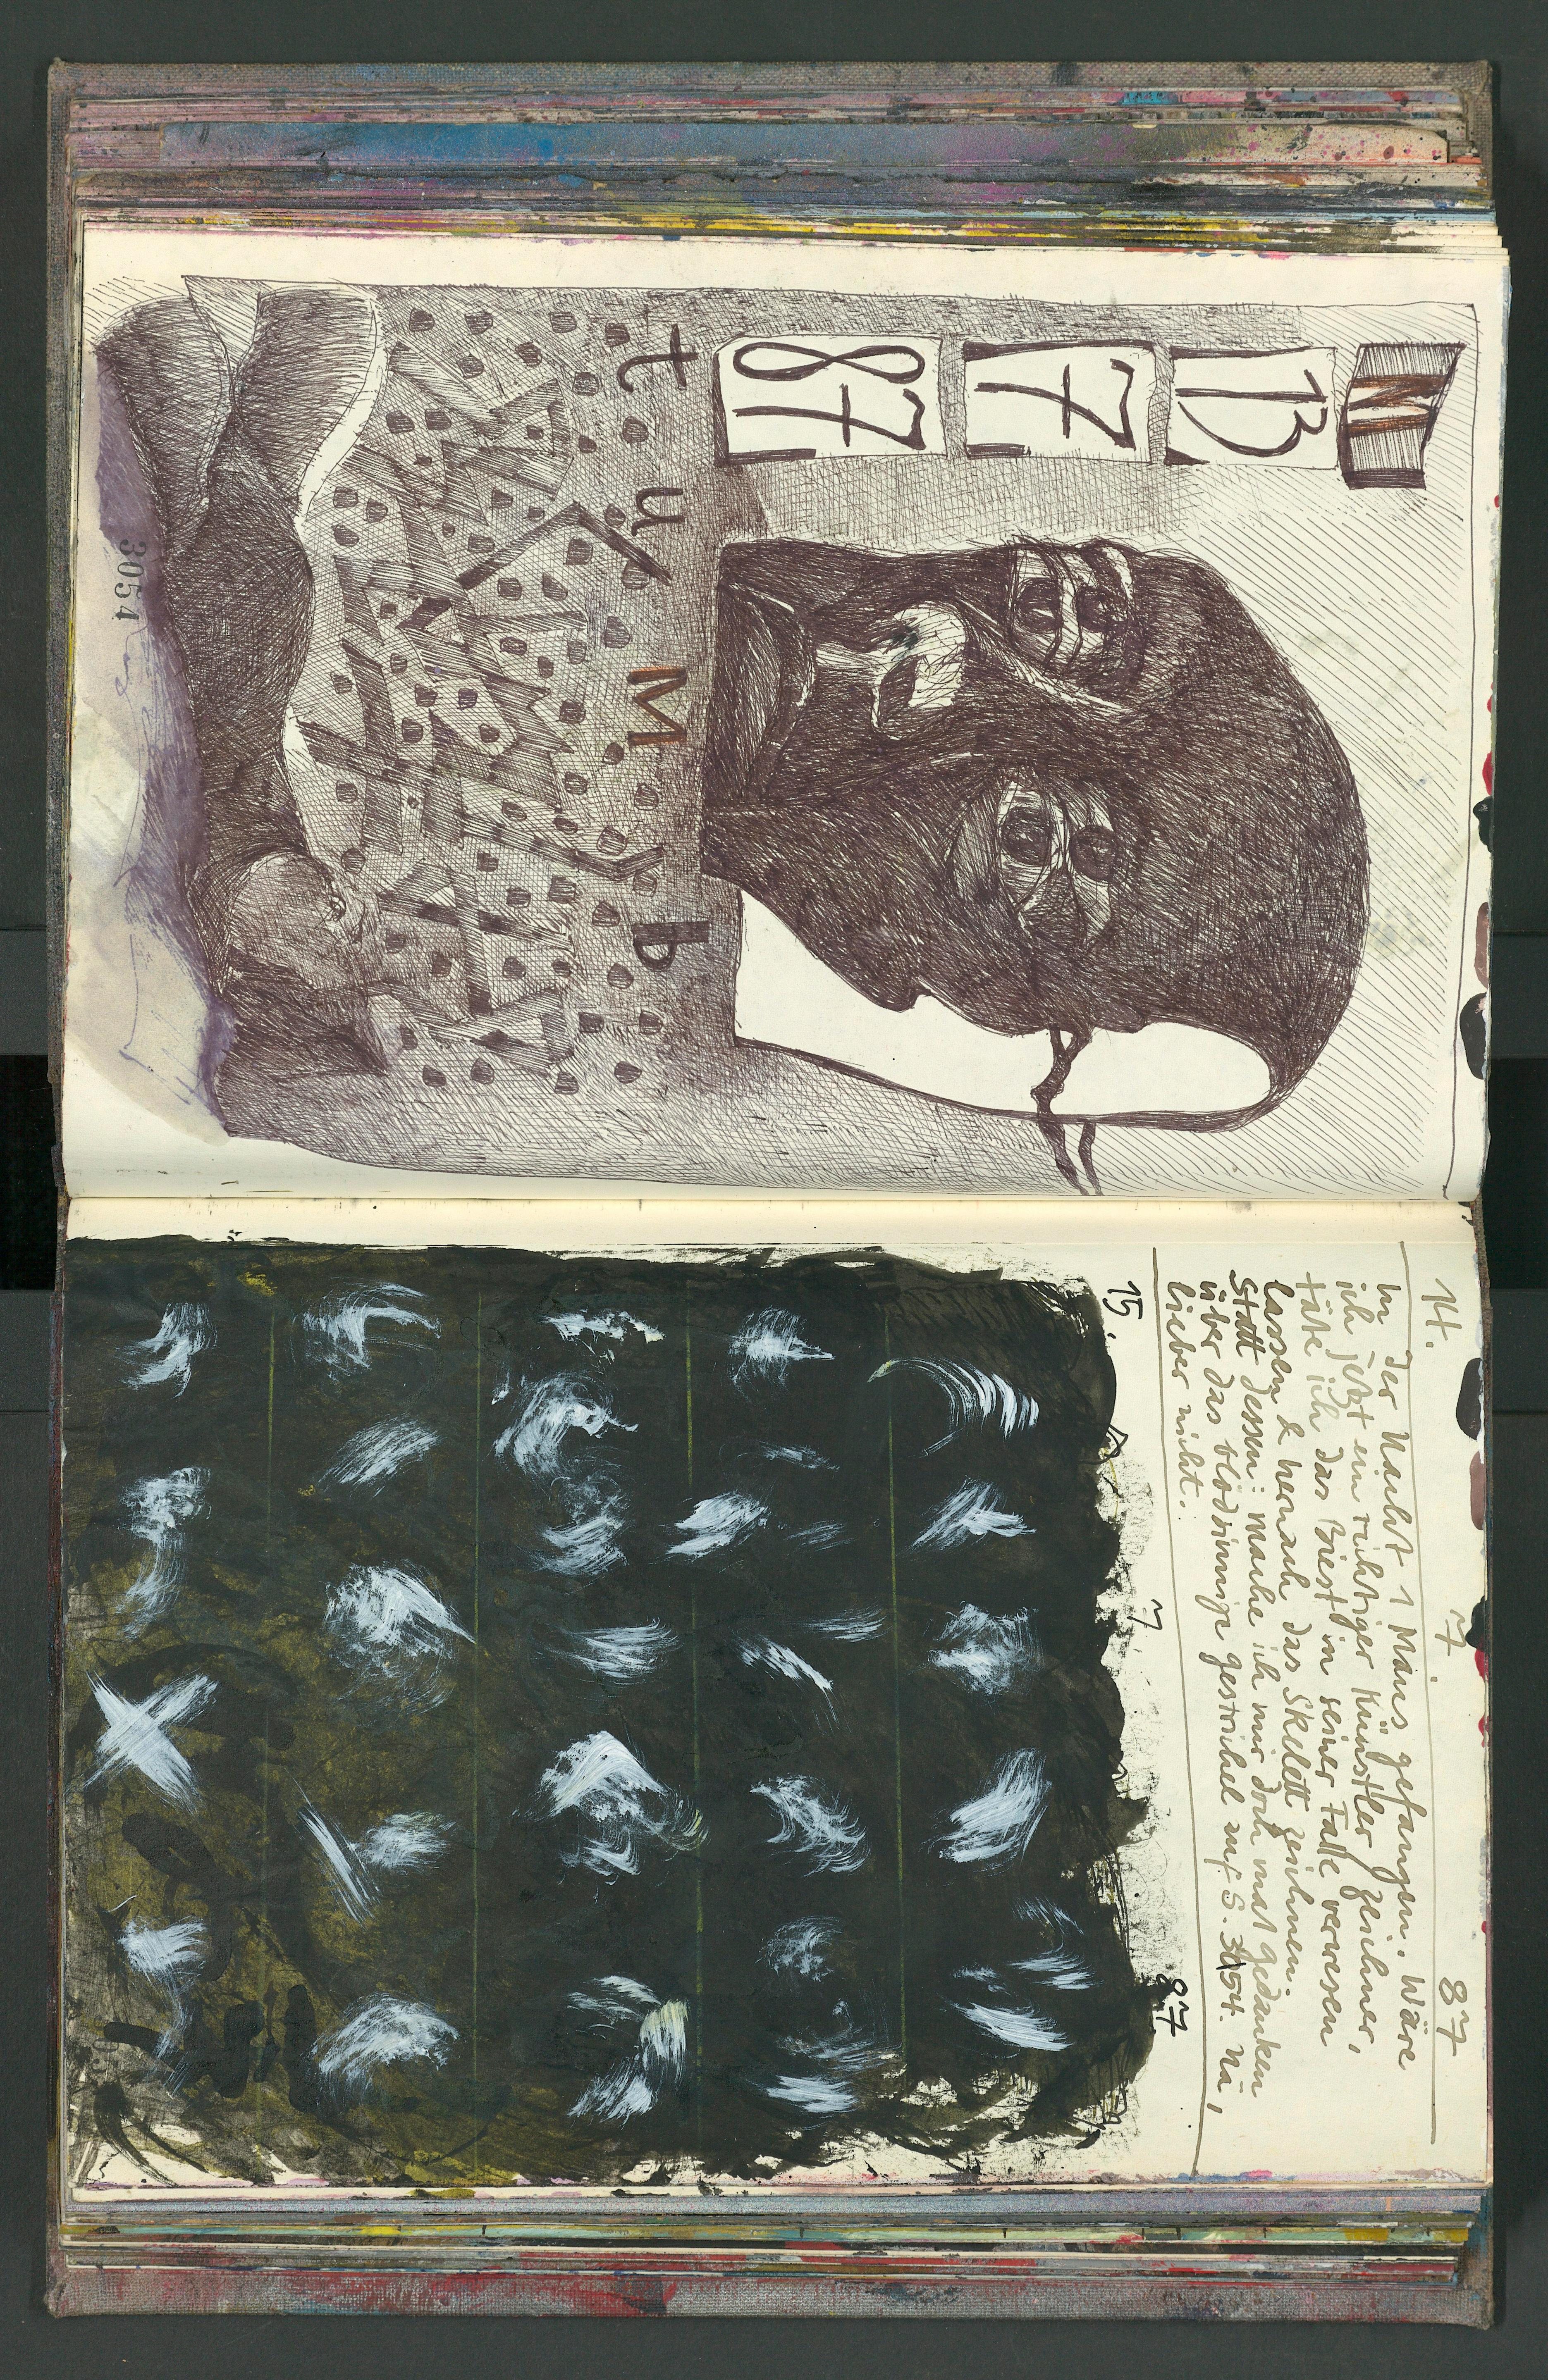 M
13
7
87
t u M b
3054
14. 7. 87
In der Nacht 1 Maus gefangen. Wäre
ich jetzt ein richtiger Künstler zeichner,
täte ich das Biest in seiner Falle verwesen
lassen & hernach das Skelett zeichnen.
Statt dessen: mache ich mir doch mal gedanken
über das blödsinnige gestrichel auf S. 3054. Nä,
lieber nicht.
15. 7 87